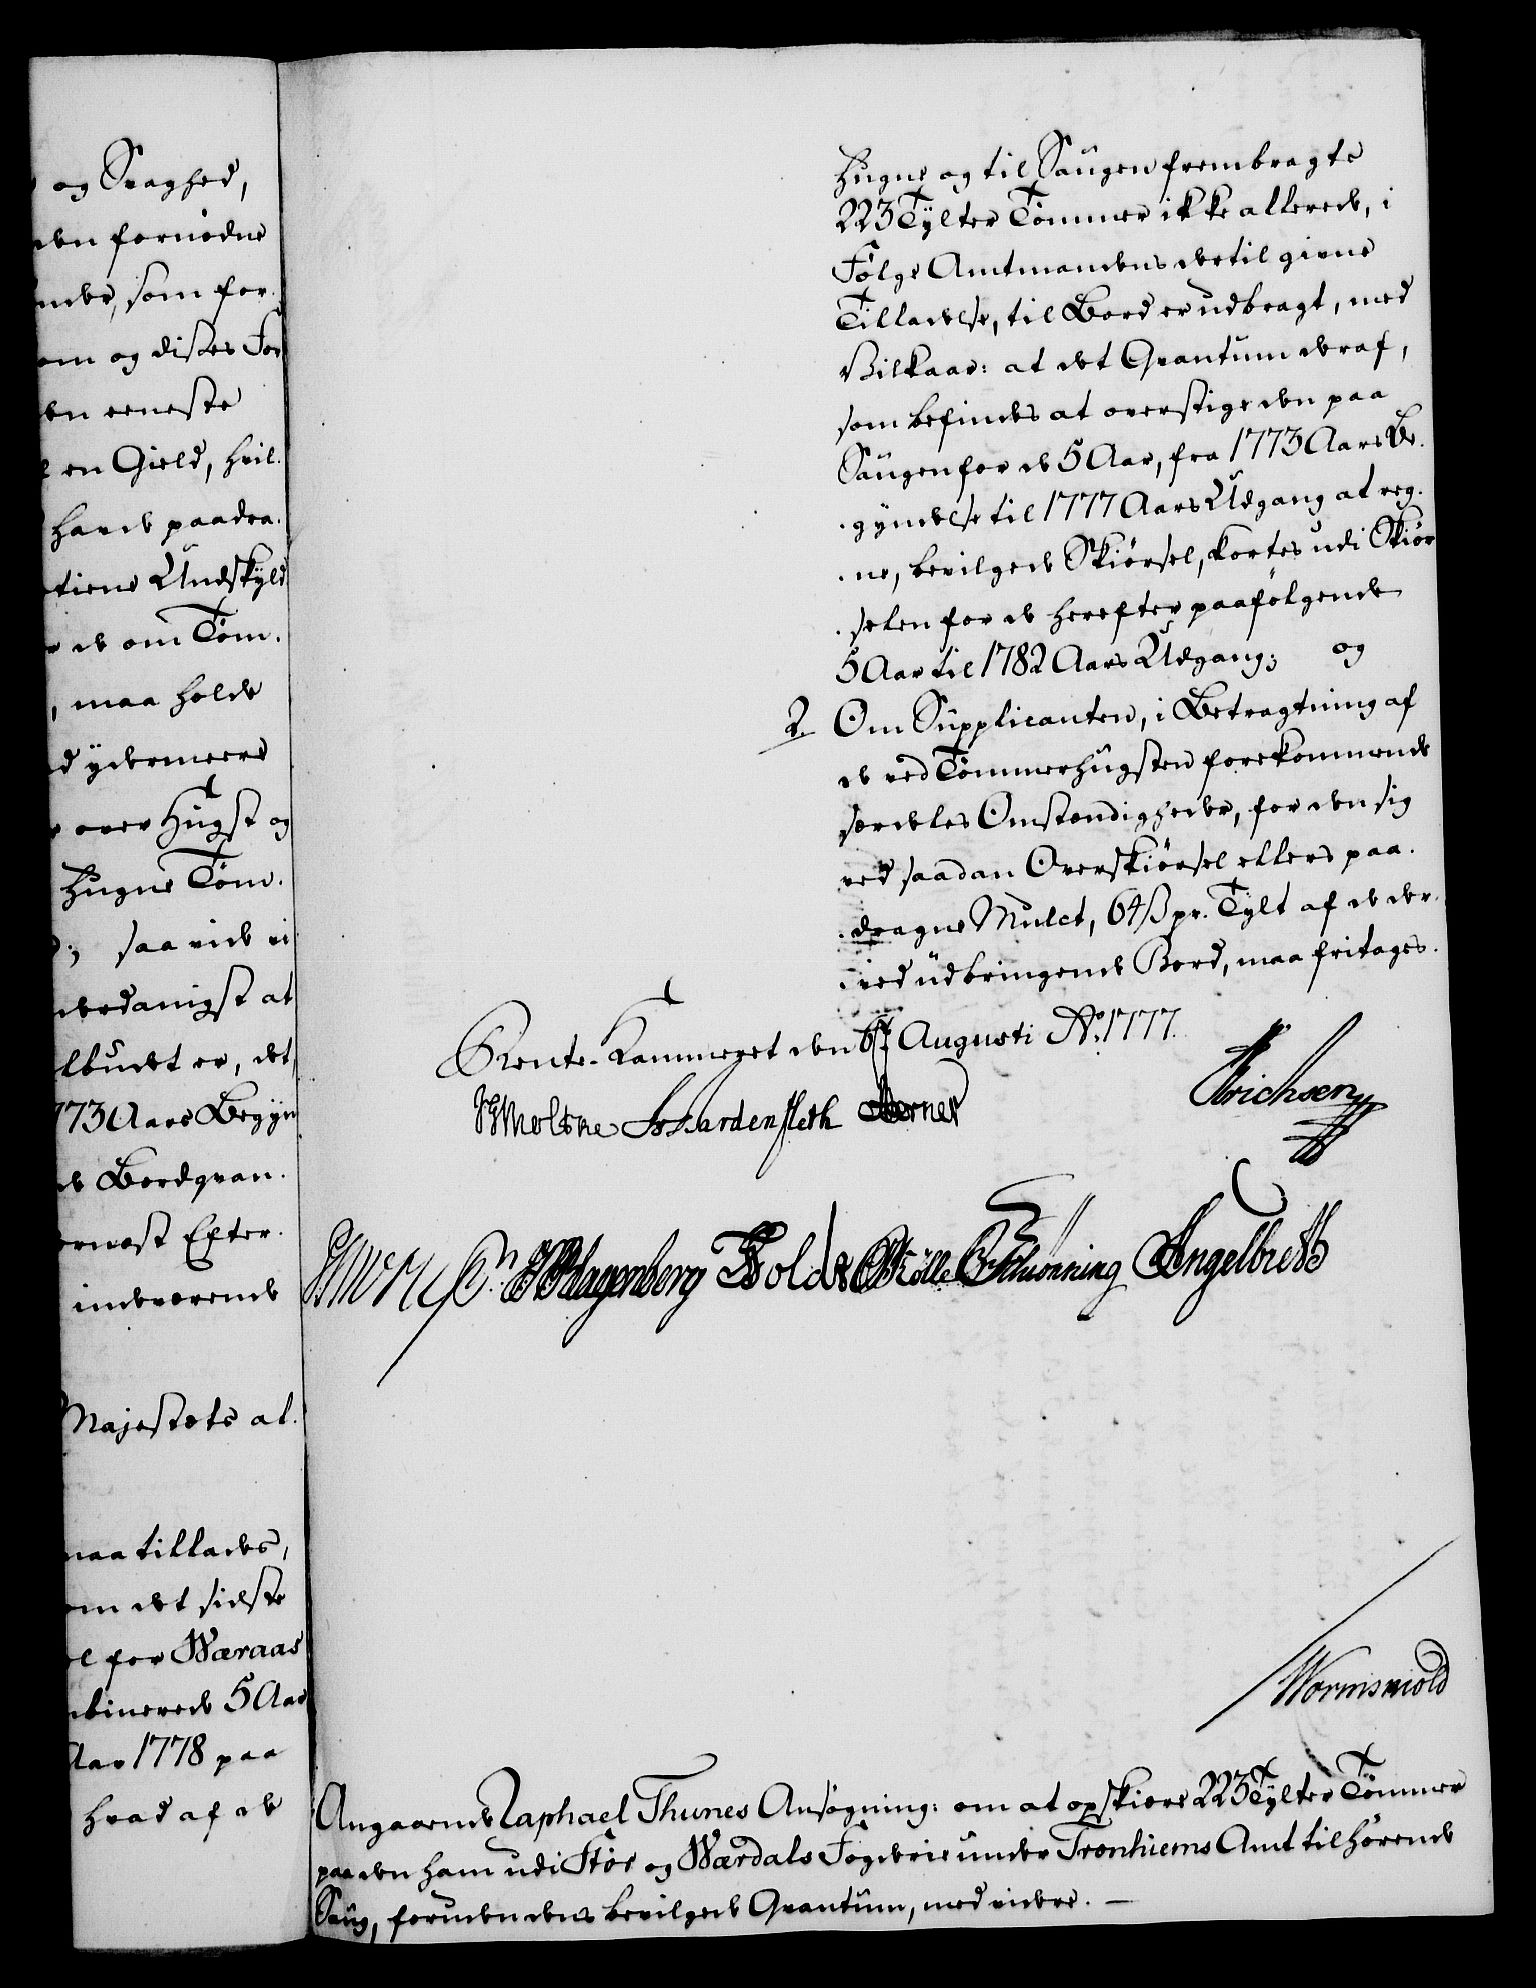 og Svaghed,
den fornødne
ander, som for
om og disses For
den eeneste
en Gield, hvil
havde paadra
tiens Undskyld
de om Töm
, maa holde
d ydermeere
over Hugst og
hugne Töm
saavidt vi
derdanigst at
lbudet er, det,
1773 Aars Begyn
de Bordqvan
ernæst Efter
indeværende
Majestæts al
maa tillades,
om det sidste
el for Wæraas
binerede 5 Aar
Aar 1778 paa
hvad af de
hugne og til Saugen frembragte
223 Tylter Tömmer ikke allerede, i
Fölge Amtmandens dertil givne
Tilladelse, til Bord er udbragt, med
Vilkaar: at det Qvantum deraf,
som befindes at overstige den paa
Saugen for de 5 Aar, fra 1773 Aars Be
gyndelse til 1777 Aars Udgang at reg
ne, bevilgede Skiörsel, kortes udi Skiör
selen for de herefter paafölgende
5 Aar til 1782 Aars Udgang; og
2. Om Supplicanten, i Betragtning af
de ved Tömmerhugsten forekommende
særdeles Omstændigheder, for den sig
ved saadan Overskiörsel ellers paa
dragne Mulct, 64 ß pr. Tylt af de der
ved udbringende Bord, maa fritages.
Rente-Kammeret den 6te Augusti Ao. 1777.
JGMoltke Hardenfleth Berner Erichsen
Klagenberg Holdt Rölle Schiönning Engelbreth
Wormskiold
Angaaende Raphael Thunes Ansögning: om at opskiære 223 Tylter Tömmer
paa den ham udi Stör og Værdals Fogderie under Tronhiems Amt tilhörende
Saug, foruden dens bevilgede Qvantum, med videre. —